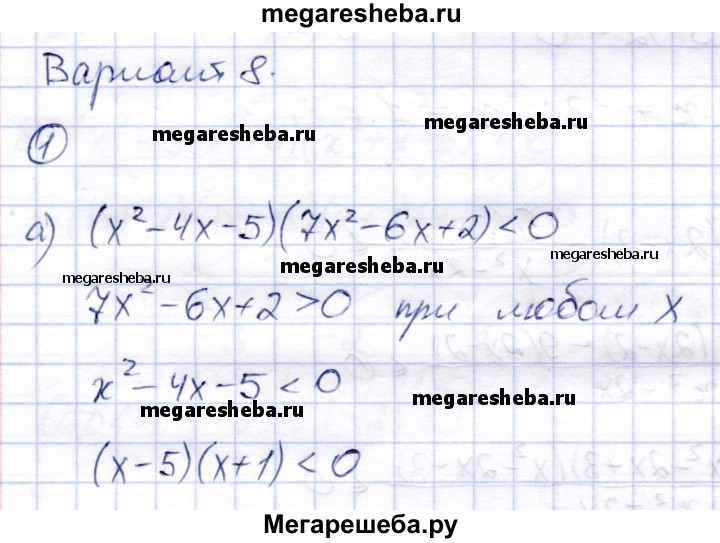 megaresheba.ru
Вариант 8.
megaresheba.ru
1
megaresheba.ru
а) (x²-4x-5)(7x²-6x+2)<0
megaresheba.ru
megaresheba.ru
megaresheba.ru
7x²-6x+2>0 при любом x
x²-4x-5<0
megaresheba.ru
megaresheba.ru
(x-5)(x+1)<0
Мегарешеба.ру